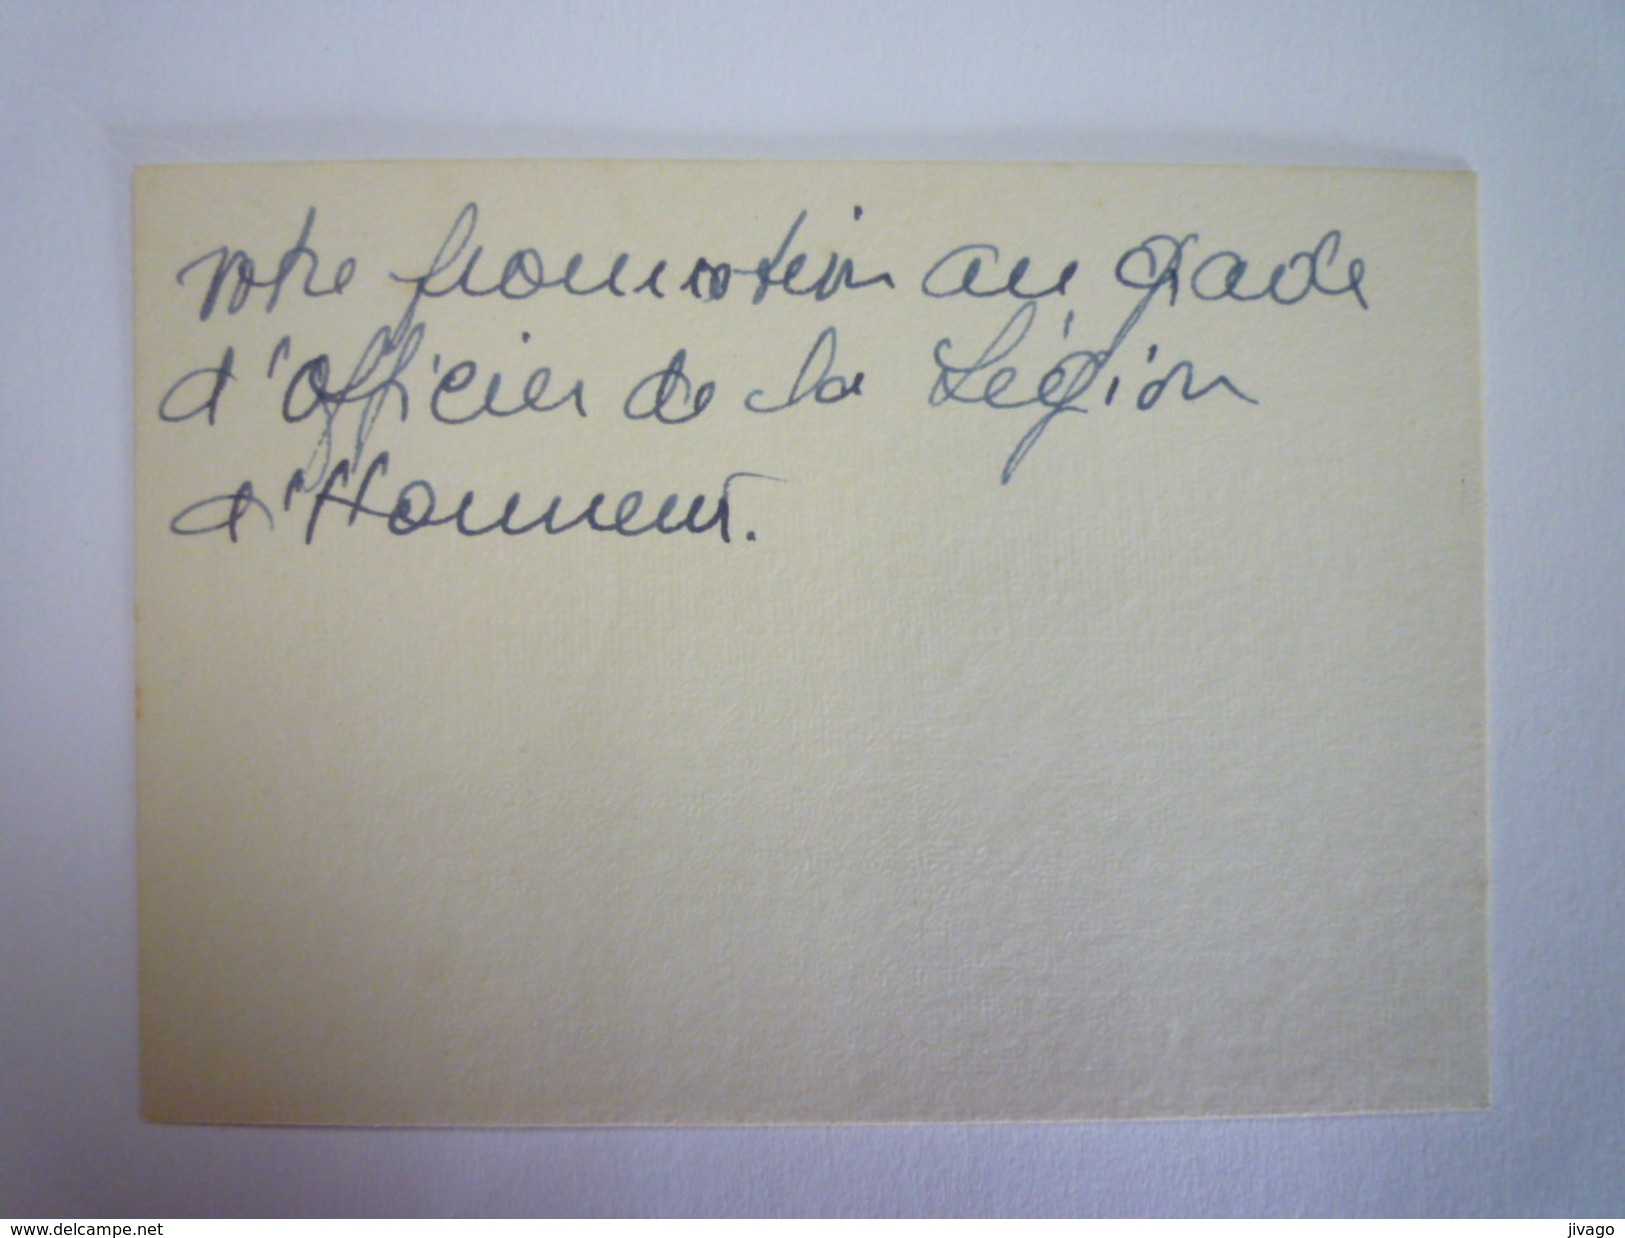 votre promotion au grade
d'Officier de la Légion
d'Honneur.
www.delcampe.net
jivago